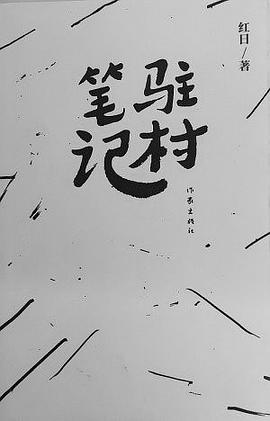 红日/著
驻村
笔记
作家出版社